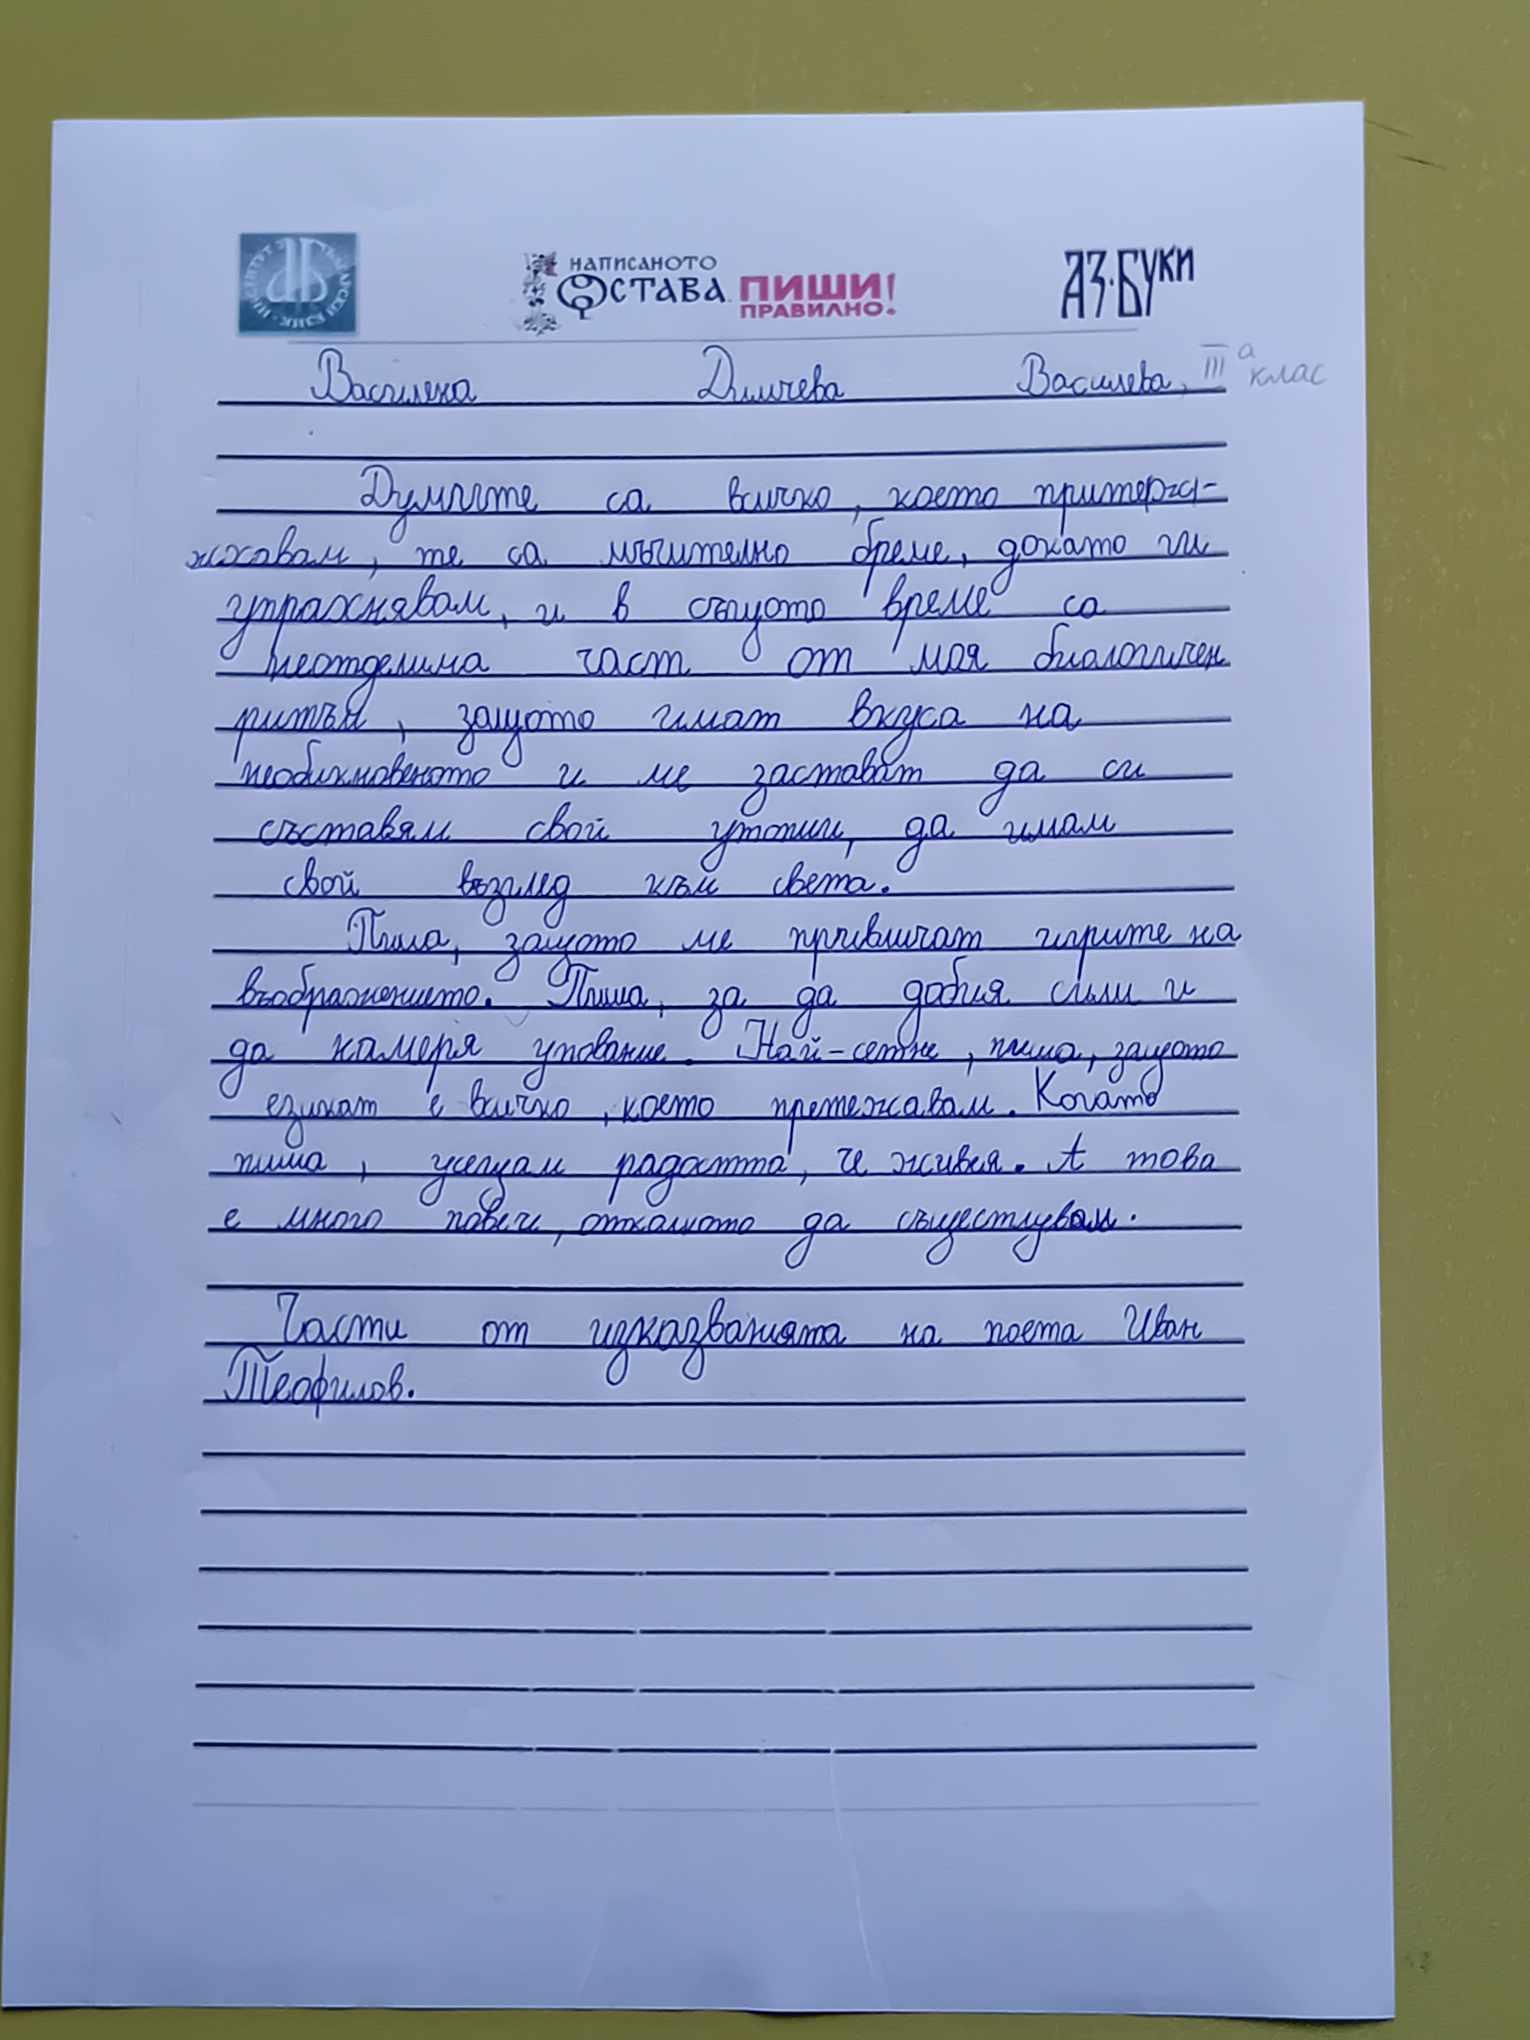 ИНСТИТУТ ЗА БЪЛГАРСКИ ЕЗИК
НАПИСАНОТО
ОСТАВА. ПИШИ
ПРАВИЛНО!
АЗ·БУКИ
Василена Димчева Василева, III а клас
Думите са всичко, което
те са мъчително бреме, докато ги
упражнявам, и в същото време са
неотделима част от моя биологичен
ритъм, защото имат вкуса на
необикновеното и ме заставят да си
съставям свой утопии, да имам
свой възглед към света.
Пиша, защото ме привличат игрите на
въображението. Пиша, за да добия сили и
да намеря упование. Най-сетне, пиша, защото
езикат е всичко, което претежавам. Когато
пиша, усещам радостта, че живея. А това
е много повече, отколкото да съществувам.
Части от изказванията на поета Иван
Теофилов.